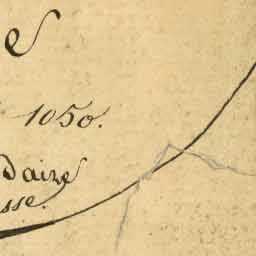 e
1050.
daize
sse.